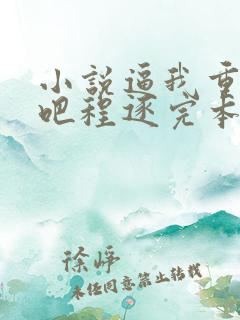 小说逼我重
吧程逐完本
徐峥
未经同意禁止转载